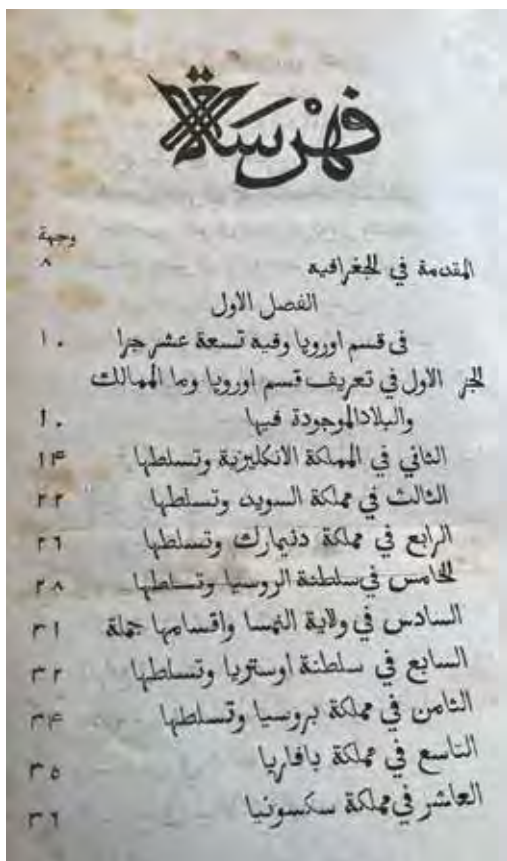 فهرسة
وجهة
المقدمة في الجغرافيه ٨
الفصل الاول
في قسم اوروپا وفيه تسعة عشر جرا ١٠
الجز الاول في تعريف قسم اوروپا وما الممالك
والبلاد الموجودة فيها ١٠
الثاني في المملكة الانكليزية وتسلطها ١٤
الثالث في مملكة السويد وتسلطها ٢٢
الرابع في مملكة دنيمارك وتسلطها ٢٦
الخامس في سلطنة الروسيا وتسلطها ٢٨
السادس في ولاية النمسا واقسامها جملة ٣١
السابع في سلطنة اوستريا وتسلطها ٣٢
الثامن في مملكة بروسيا وتسلطها ٣٤
التاسع في مملكة بافاريا ٣٥
العاشر في مملكة سكسونيا ٣٦